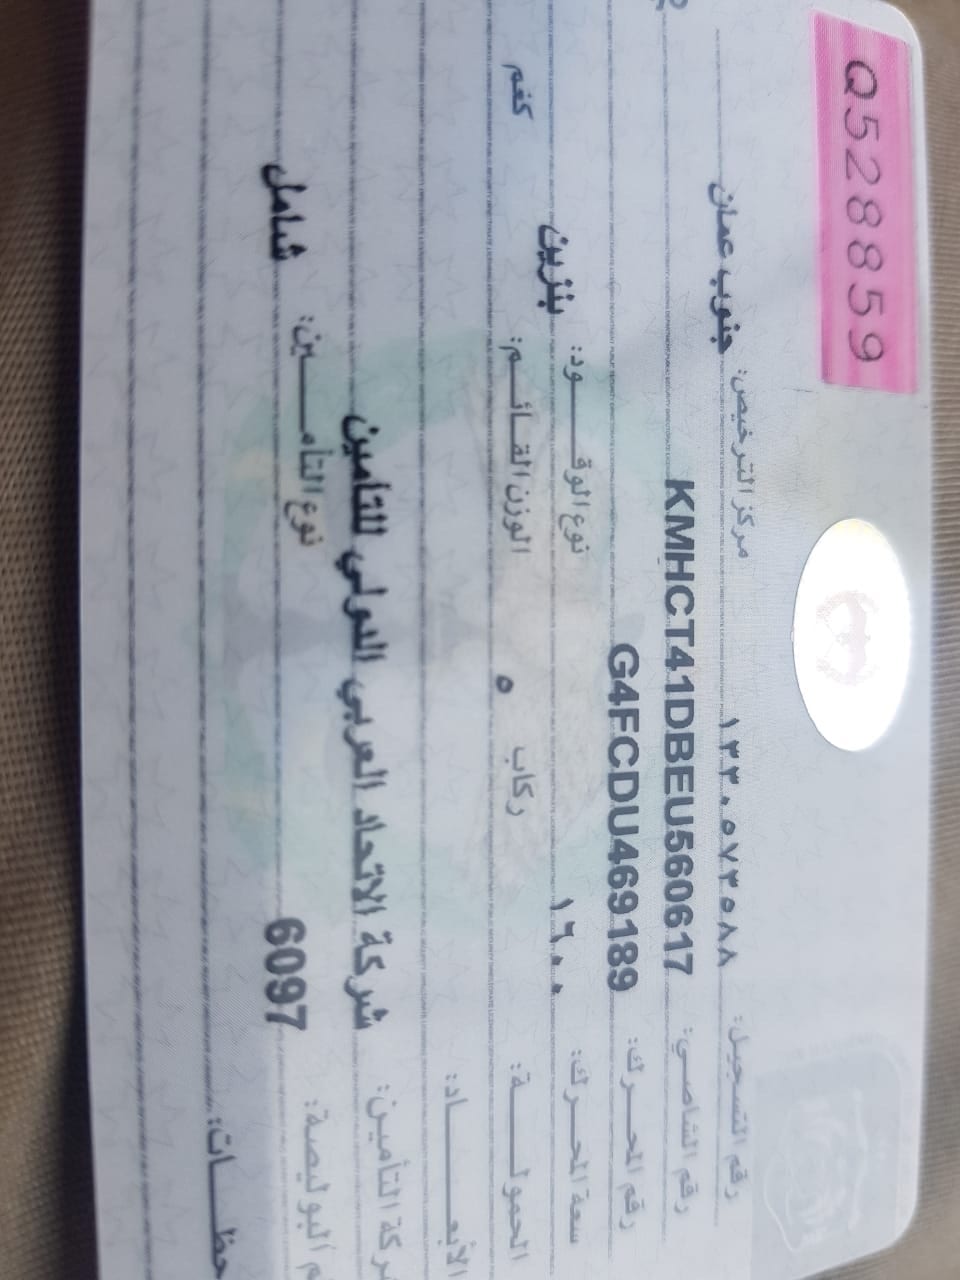 Q528859
رقم التسجيل: ١٣٣٠٥٧٣٥٨٨ مركز الترخيص: جنوب عمان
رقم الشاصي: KMHCT41DBEU560617
رقم المحرك: G4FCDU469189
سعة المحرك: ١٦٠٠ نوع الوقود: بنزين
الحمولة: ٥ ركاب الوزن القائم: كغم
الأبعاد:
شركة التأمين: شركة الاتحاد العربي الدولي للتأمين
البوليصة: 6097 نوع التأمين: شامل